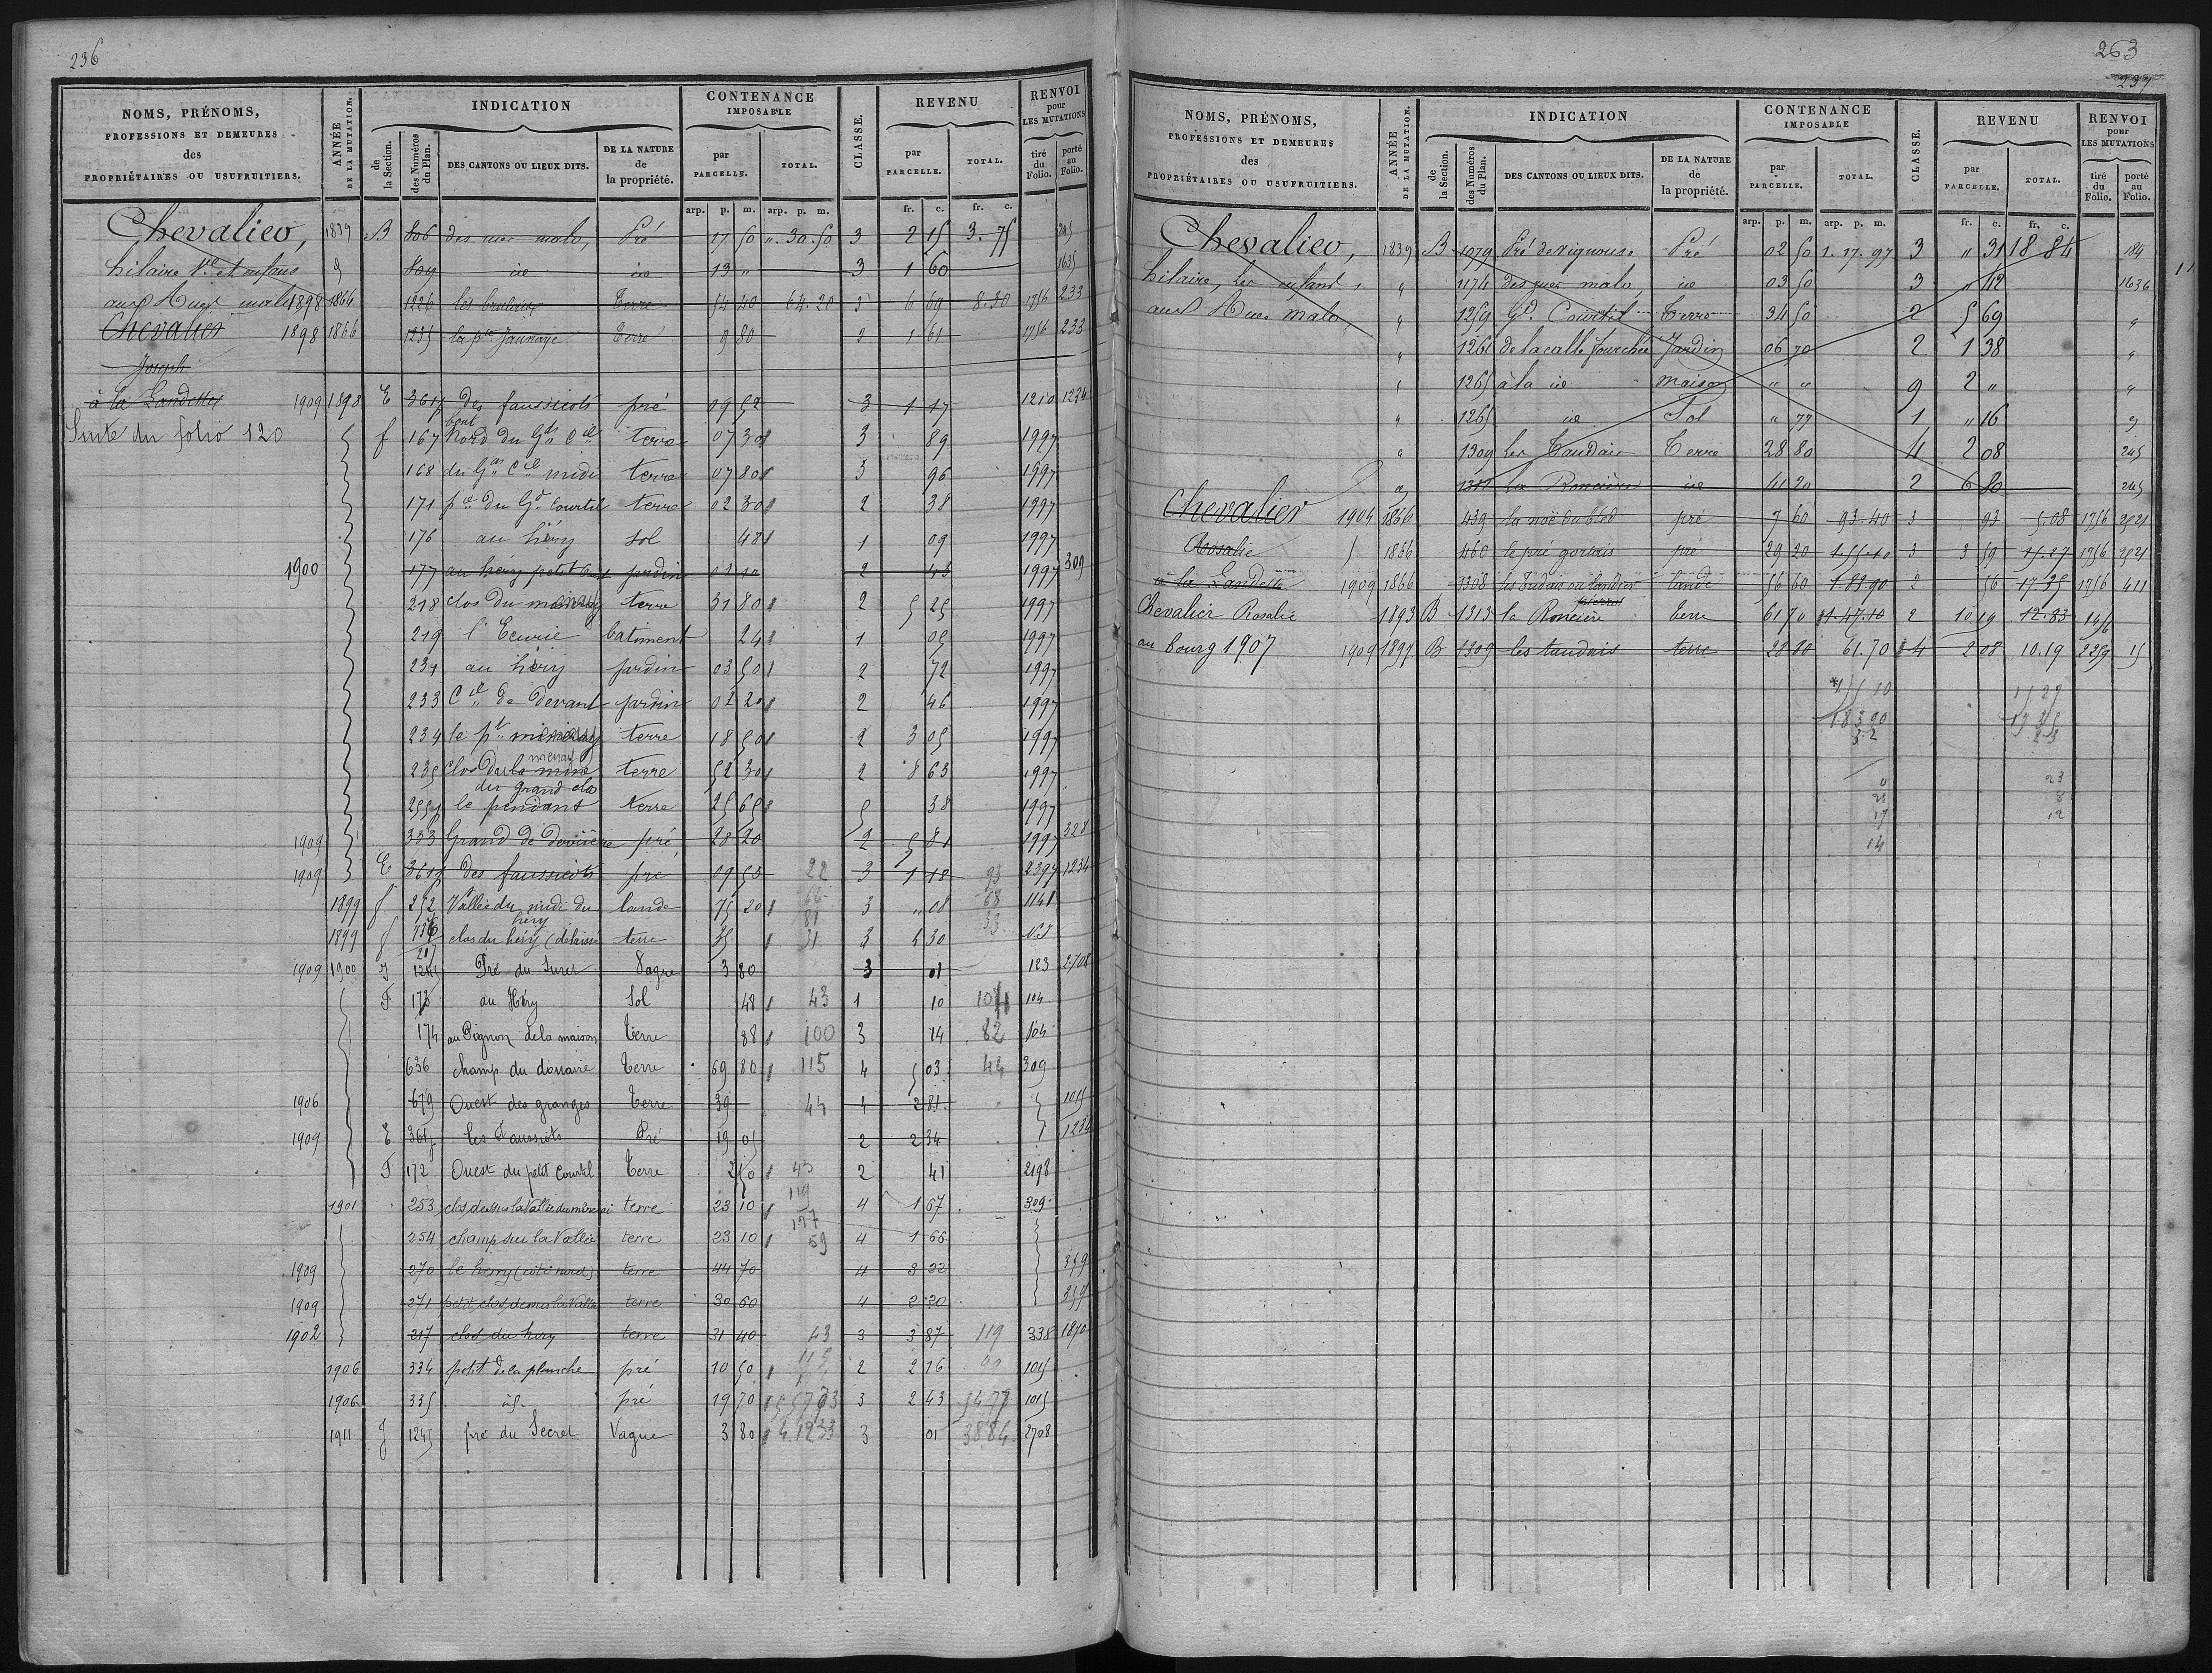 236
NOMS, PRÉNOMS,
PROFESSIONS ET DEMEURES
des
PROPRIÉTAIRES OU USUFRUITIERS.
ANNÉE
DE LA MUTATION.
INDICATION
de la Section.
des Numéros du Plan.
DES CANTONS OU LIEUX DITS.
DE LA NATURE
de
la propriété.
CONTENANCE
IMPOSABLE
par
PARCELLE.
TOTAL.
CLASSE.
REVENU
par
PARCELLE.
TOTAL.
RENVOI
pour
LES MUTATIONS
tiré du Folio.
porté au Folio.
arp. p. m. arp. p. m. fr. c. fr. c.
Chevalier, 1839 B 806 des mes malo, Pré 17 50 ". 30. 50 3 2 15 3. 75 245
hilaire Ve et enfans 809 ide ide 13 " 3 1 60 1635
aux Rues malo 1898 1866 1226 les brulais Terre 54 40 64. 20 3 6 69 8. 30 1756 233
Chevalier 1898 1866 1235 la pte Jaunaye Terre 9 80 2 1 61 1756 233
Joseph
à la Landette 1909 1898 E 361p des faussicots pré 09 52 3 1 17 1210 1234
Suite du folio 120 f 167 bout Nord du Gd Cil terre 07 30 3 89 1997
168 du Gd Cil midi terre 07 80 3 96 1997
171 pce du Gd Courtil terre 02 30 2 38 1997
176 au héry sol 48 1 09 1997
1900 177 au héry petit jardin 2 43 1997 309
218 clos du menay terre 31 80 2 5 25 1997
219 l'Ecurie batiment 24 1 05 1997
231 au héry jardin 03 50 2 72 1997
233 Cil de devant jardin 02 20 2 46 1997
234 le pt menay terre 18 50 2 3 05 1997
235 Clos menay terre 52 30 2 8 63 1997
du grand clos
255p le pendant terre 25 65 5 38 1997
1909 333 Grand de derrière pré 28 20 2 5 81 1997 328
1909 E 361p des faussicots pré 09 53 22 3 1 18 93 2397 1234
1899 f 252 Vallée du midi du héry lande 75 20 3 " 08 68 1141
1899 f 736 clos du héry (délaissé terre 35 31 3 5 30 33 N.I
1909 1900 J 1245 Pré du Suret Vague 3 80 3 01 123 2708
F 173 au Héry Sol 48 43 1 10 104
174 au Pignon de la maison Terre 88 100 3 14 82 104
636 champ du douaire Terre 69 80 115 4 5 03 44 309
1906 679 Ouest des granges Terre 39 44 4 2 81 1015
1909 E 361p les Faussicots Pré 19 05 2 2 34 1234
F 172 Ouest du petit Courtil Terre 2 50 43 2 41 2198
1901 253 clos dessus la Vallée du menerai terre 23 10 119 4 1 67 309
254 champ sur la Vallée terre 23 10 59 4 1 66
1909 270 le hery (côté nord) terre 44 70 4 3 22 359
1909 271 petit clos dessus la Vallée terre 30 60 4 2 20 359
1902 217 clos du hery terre 31 40 43 3 3 87 119 338 1870
1906 334 petit de la planche pré 10 50 2 2 16 1015
1906 335 id. pré 19 70 3 2 43 5477 1015
1911 J 1245 pré du Secret Vague 3 80 4.1233 3 01 3884 2708
263
237
NOMS, PRÉNOMS,
PROFESSIONS ET DEMEURES
des
PROPRIÉTAIRES OU USUFRUITIERS.
ANNÉE
DE LA MUTATION.
INDICATION
de la Section.
des Numéros du Plan.
DES CANTONS OU LIEUX DITS.
DE LA NATURE
de
la propriété.
CONTENANCE
IMPOSABLE
par
PARCELLE.
TOTAL.
CLASSE.
REVENU
par
PARCELLE.
TOTAL.
RENVOI
pour
LES MUTATIONS
tiré du Folio.
porté au Folio.
arp. p. m. arp. p. m. fr. c. fr. c.
Chevalier, 1839 B 1079 Pré de vignouse Pré 02 50 1. 17. 97 3 " 31 18 84 184
hilaire, les enfans, " 1174 des rues malo, ide 03 50 3 " 42 1636
aux Rues malo, " 1259 Gd Courtil Terre 34 50 2 5 69 "
" 1261 de la calle fourchée Jardin 06 70 2 1 38 "
" 1265 à la ide maison " " 9 2 " "
" 1265 ide Sol " 77 1 " 16 "
" 1309 les Taudais Terre 28 80 4 2 08 245
" 1311 la Roncière ide 41 20 2 6 80 245
Chevalier 1904 1866 439 la noë du bled pré 7 60 93. 40 3 93 5.08 1756 2521
Rosalie 1866 460 le pré gortais pré 29 20 1.55.10 3 3 59 15.27 1756 2521
à la Landette 1909 1866 1308 les Tudais ou landes lande 56 60 1.83.90 2 56 17.35 1756 411
Chevalier Rosalie 1893 B 1313 la Roncière pierral terre 61 70 1.47.10 2 10 19 12.83 1456
au bourg 1907 1909 1897 B 1309 les taudais terre 28 80 61.70 4 2 08 10.19 2259 15
155 10 15 27
183 90 17 35
52 23
0 23
21 8
17 12
14